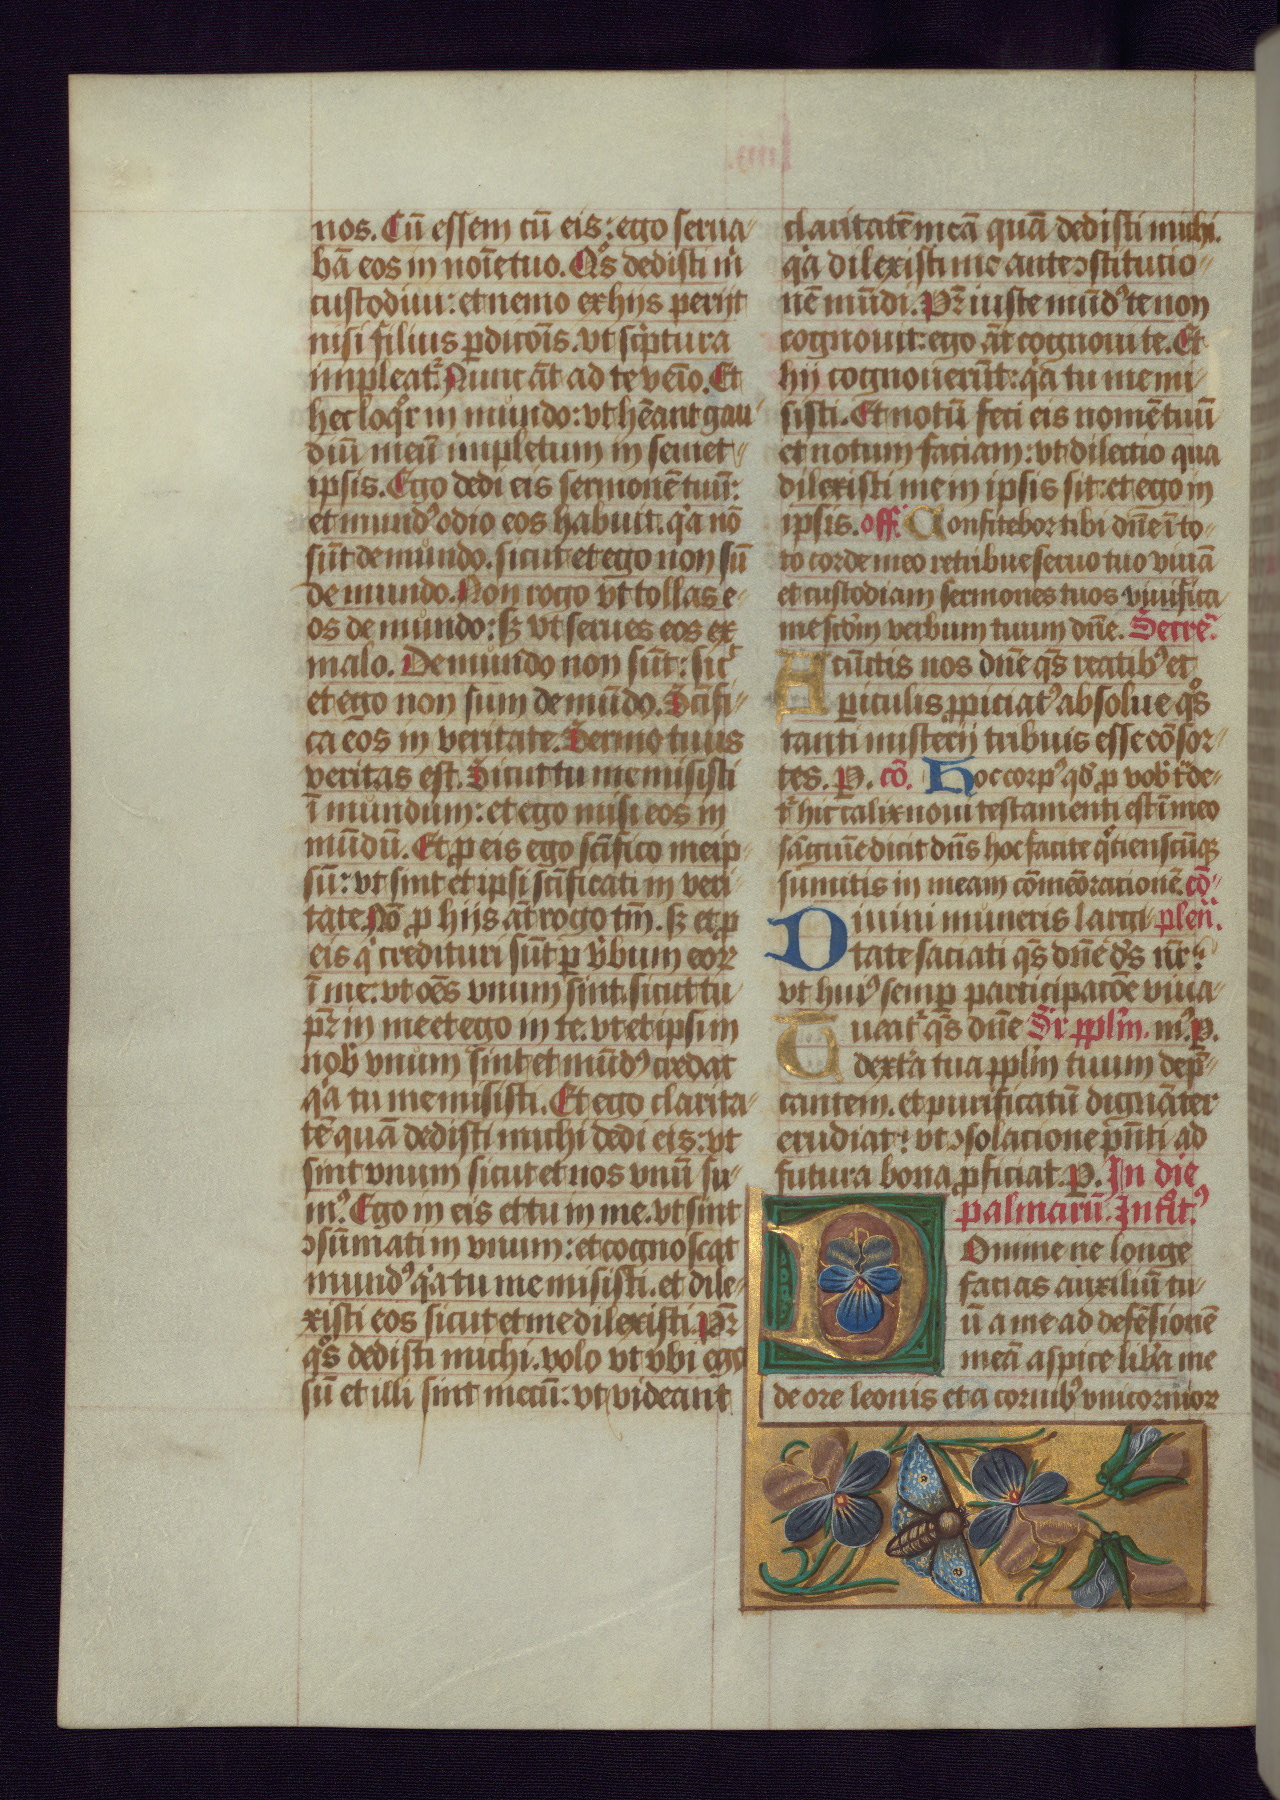 nos. Cū essem cū eis: ego serua
bā eos in noīe tuo. Qͦs dedisti m̍
custodiui: et nemo ex hijs perijt
nisi filius ꝑdicōis. vt sc̍ptura
impleat᷑. Nunc āt ad te venio. Et
hec loqͦr in mundo: vt hēant gau
diū meū impletum in semet
ipsis. Ego dedi eis sermonē tuū:
et mundꝰ odio eos habuit. q̍a nō
sūt de mundo. sicut et ego non sū
de mundo. Non rogo vt tollas e
os de mundo: sꝫ vt serues eos ex
malo. De mundo non sūt: sic᷑
et ego non sum de mūdo. Sc̄ifi
ca eos in veritate. Sermo tuus
veritas est. Sicut tu me misisti
ī mundum: et ego misi eos in
mūdū. Et ꝓ eis ego sc̄ifico meip
sū: vt sint et ipsi sc̄ificati in veri
tate. Nō ꝓ hijs āt rogo tm̄. sꝫ et ꝓ
eis q̍ credituri sūt ꝑ v̍bum eoꝝ
ī me. vt oēs vnum sint. sicut tu
pr̄ in me et ego in te. vt et ipsi in
nob̍ vnum sint et mūdꝰ credat
q̍a tu me misisti. Et ego clarita
tē quā dedisti michi dedi eis: vt
sint vnum sicut et nos vnū su
mꝰ. Ego in eis et tu in me. vt sint
ↄsūmati in vnum: et cognoscat
mundꝰ q̍a tu me misisti. et dile
xisti eos sicut et me dilexisti. Pr̄
qͦs dedisti michi. volo vt vbi ego
sū et illi sint mecū: vt videant
claritatē meā quā dedisti michi.
q̍a dilexisti me ante ↄstitucio
nē mūdi. Pr̄ iuste mūdꝰ te non
cognouit: ego āt cognoui te. Et
hij cognouerūt: q̍a tu me mi
sisti. Et notū feci eis nomē tuū
et notum faciam: vt dilectio qua
dilexisti me in ipsis sit: et ego in
ipsis. off. Confitebor tibi dn̄e ī to
to corde meo retribue seruo tuo viuā
et custodiam sermones tuos viuifica
me scd̄m verbum tuum dn̄e. Secrē.
A cūctis nos dn̄e qs̄ reatibꝰ et
periculis ꝓpiciatꝰ absolue qͦs
tanti misterij tribuis esse cōsor
tes. P. cō. Hoc corpꝰ qd̍ ꝓ vob̍ t᷑de
t᷑ hic calix noui testamenti est ī meo
sāguīe dicit dn̄s hoc facite qͦcienscūqꝫ
sumitis in meam cōmēoracionē. cō
Diuini muneris largi plen̄.
tate saciati qs̄ dn̄e d̄s nr̄:
vt huiꝰ semꝑ participacōe viua
mꝰ. P.
Tueat᷑ qs̄ dn̄e Sr̄ pplm̄.
dext̍a tua pplm̄ tuum dep̄
cantem. et purificatū dignāter
erudiat: vt ↄsolacione pn̄ti ad
futura bona ꝓficiat. P. In die
palmarū. Introit᷑ꝰ
Domine ne longe
facias auxiliū tu
ū a me ad defēsionē
meā aspice lib̍a me
de ore leonis et a cornibꝰ vnicornioꝝ